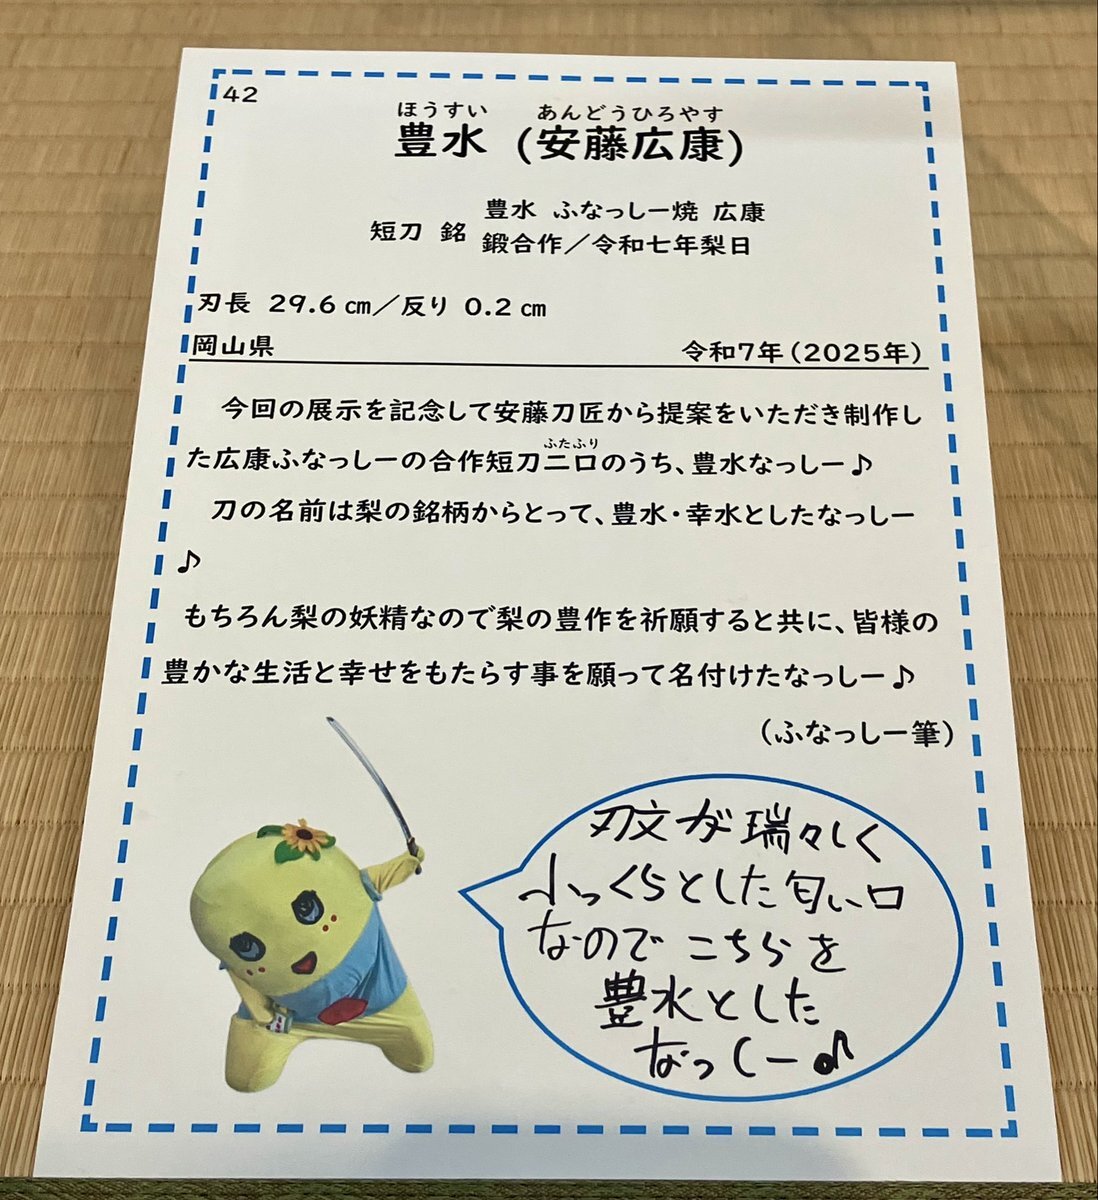 42
ほうすい あんどうひろやす
豊水 (安藤広康)
豊水 ふなっしー焼 広康
短刀 銘
鍛合作／令和七年梨日
刃長 29.6㎝／反り 0.2㎝
岡山県 令和7年(2025年)
今回の展示を記念して安藤刀匠から提案をいただき制作し
ふたふり
た広康ふなっしーの合作短刀二口のうち、豊水なっしー♪
刀の名前は梨の銘柄からとって、豊水・幸水としたなっしー
♪
もちろん梨の妖精なので梨の豊作を祈願すると共に、皆様の
豊かな生活と幸せをもたらす事を願って名付けたなっしー♪
(ふなっしー筆)
刃文が瑞々しく
ふっくらとした匂い口
なのでこちらを
豊水とした
なっしー♪